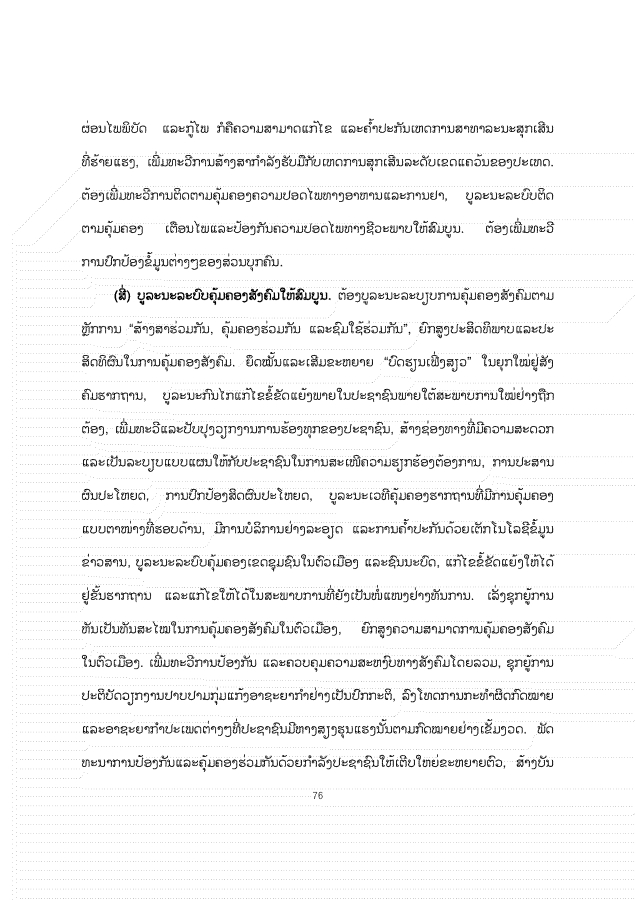 ຜ່ອນໄພພິບັດ ແລະກູ້ໄພ ກໍຄືຄວາມສາມາດແກ້ໄຂ ແລະຄ້ຳປະກັນເຫດການສາທາລະນະສຸກເສີນ
ທີ່ຮ້າຍແຮງ, ເພີ່ມທະວີການສ້າງສາກຳລັງຮັບມືກັບເຫດການສຸກເສີນລະດັບເຂດແຄວ້ນຂອງປະເທດ.
ຕ້ອງເພີ່ມທະວີການຕິດຕາມຄຸ້ມຄອງຄວາມປອດໄພທາງອາຫານແລະການຢາ, ບູລະນະລະບົບຕິດ
ຕາມຄຸ້ມຄອງ ເຕືອນໄພແລະປ້ອງກັນຄວາມປອດໄພທາງຊີວະພາບໃຫ້ສົມບູນ. ຕ້ອງເພີ່ມທະວີ
ການປົກປ້ອງຂໍ້ມູນຕ່າງໆຂອງສ່ວນບຸກຄົນ.
(ສີ່) ບູລະນະລະບົບຄຸ້ມຄອງສັງຄົມໃຫ້ສົມບູນ. ຕ້ອງບູລະນະລະບຽບການຄຸ້ມຄອງສັງຄົມຕາມ
ຫຼັກການ “ສ້າງສາຮ່ວມກັນ, ຄຸ້ມຄອງຮ່ວມກັນ ແລະຊົມໃຊ້ຮ່ວມກັນ”, ຍົກສູງປະສິດທິພາບແລະປະ
ສິດທິຜົນໃນການຄຸ້ມຄອງສັງຄົມ. ຍຶດໝັ້ນແລະເສີມຂະຫຍາຍ “ບົດຮຽນເຟີ່ງສຽວ” ໃນຍຸກໃໝ່ຢູ່ສັງ
ຄົມຮາກຖານ, ບູລະນະກົນໄກແກ້ໄຂຂໍ້ຂັດແຍ້ງພາຍໃນປະຊາຊົນພາຍໃຕ້ສະພາບການໃໝ່ຢ່າງຖືກ
ຕ້ອງ, ເພີ່ມທະວີແລະປັບປຸງວຽກງານການຮ້ອງທຸກຂອງປະຊາຊົນ, ສ້າງຊ່ອງທາງທີ່ມີຄວາມສະດວກ
ແລະເປັນລະບຽບແບບແຜນໃຫ້ກັບປະຊາຊົນໃນການສະເໜີຄວາມຮຽກຮ້ອງຕ້ອງການ, ການປະສານ
ຜົນປະໂຫຍດ, ການປົກປ້ອງສິດຜົນປະໂຫຍດ, ບູລະນະເວທີຄຸ້ມຄອງຮາກຖານທີ່ມີການຄຸ້ມຄອງ
ແບບຕາໜ່າງທີ່ຮອບດ້ານ, ມີການບໍລິການຢ່າງລະອຽດ ແລະການຄ້ຳປະກັນດ້ວຍເຕັກໂນໂລຊີຂໍ້ມູນ
ຂ່າວສານ, ບູລະນະລະບົບຄຸ້ມຄອງເຂດຊຸມຊົນໃນຕົວເມືອງ ແລະຊົນນະບົດ, ແກ້ໄຂຂໍ້ຂັດແຍ້ງໃຫ້ໄດ້
ຢູ່ຂັ້ນຮາກຖານ ແລະແກ້ໄຂໃຫ້ໄດ້ໃນສະພາບການທີ່ຍັງເປັນໜໍ່ແໜງຢ່າງທັນການ. ເລັ່ງຊຸກຍູ້ການ
ຫັນເປັນທັນສະໄໝໃນການຄຸ້ມຄອງສັງຄົມໃນຕົວເມືອງ, ຍົກສູງຄວາມສາມາດການຄຸ້ມຄອງສັງຄົມ
ໃນຕົວເມືອງ. ເພີ່ມທະວີການປ້ອງກັນ ແລະຄວບຄຸມຄວາມສະຫງົບທາງສັງຄົມໂດຍລວມ, ຊຸກຍູ້ການ
ປະຕິບັດວຽກງານປາບປາມກຸ່ມແກ້ງອາຊະຍາກຳຢ່າງເປັນປົກກະຕິ, ລົງໂທດການກະທຳຜິດກົດໝາຍ
ແລະອາຊະຍາກຳປະເພດຕ່າງໆທີ່ປະຊາຊົນມີຫາງສຽງຮຸນແຮງນັ້ນຕາມກົດໝາຍຢ່າງເຂັ້ມງວດ. ພັດ
ທະນາການປ້ອງກັນແລະຄຸ້ມຄອງຮ່ວມກັນດ້ວຍກຳລັງປະຊາຊົນໃຫ້ເຕີບໃຫຍ່ຂະຫຍາຍຕົວ, ສ້າງບັນ
76